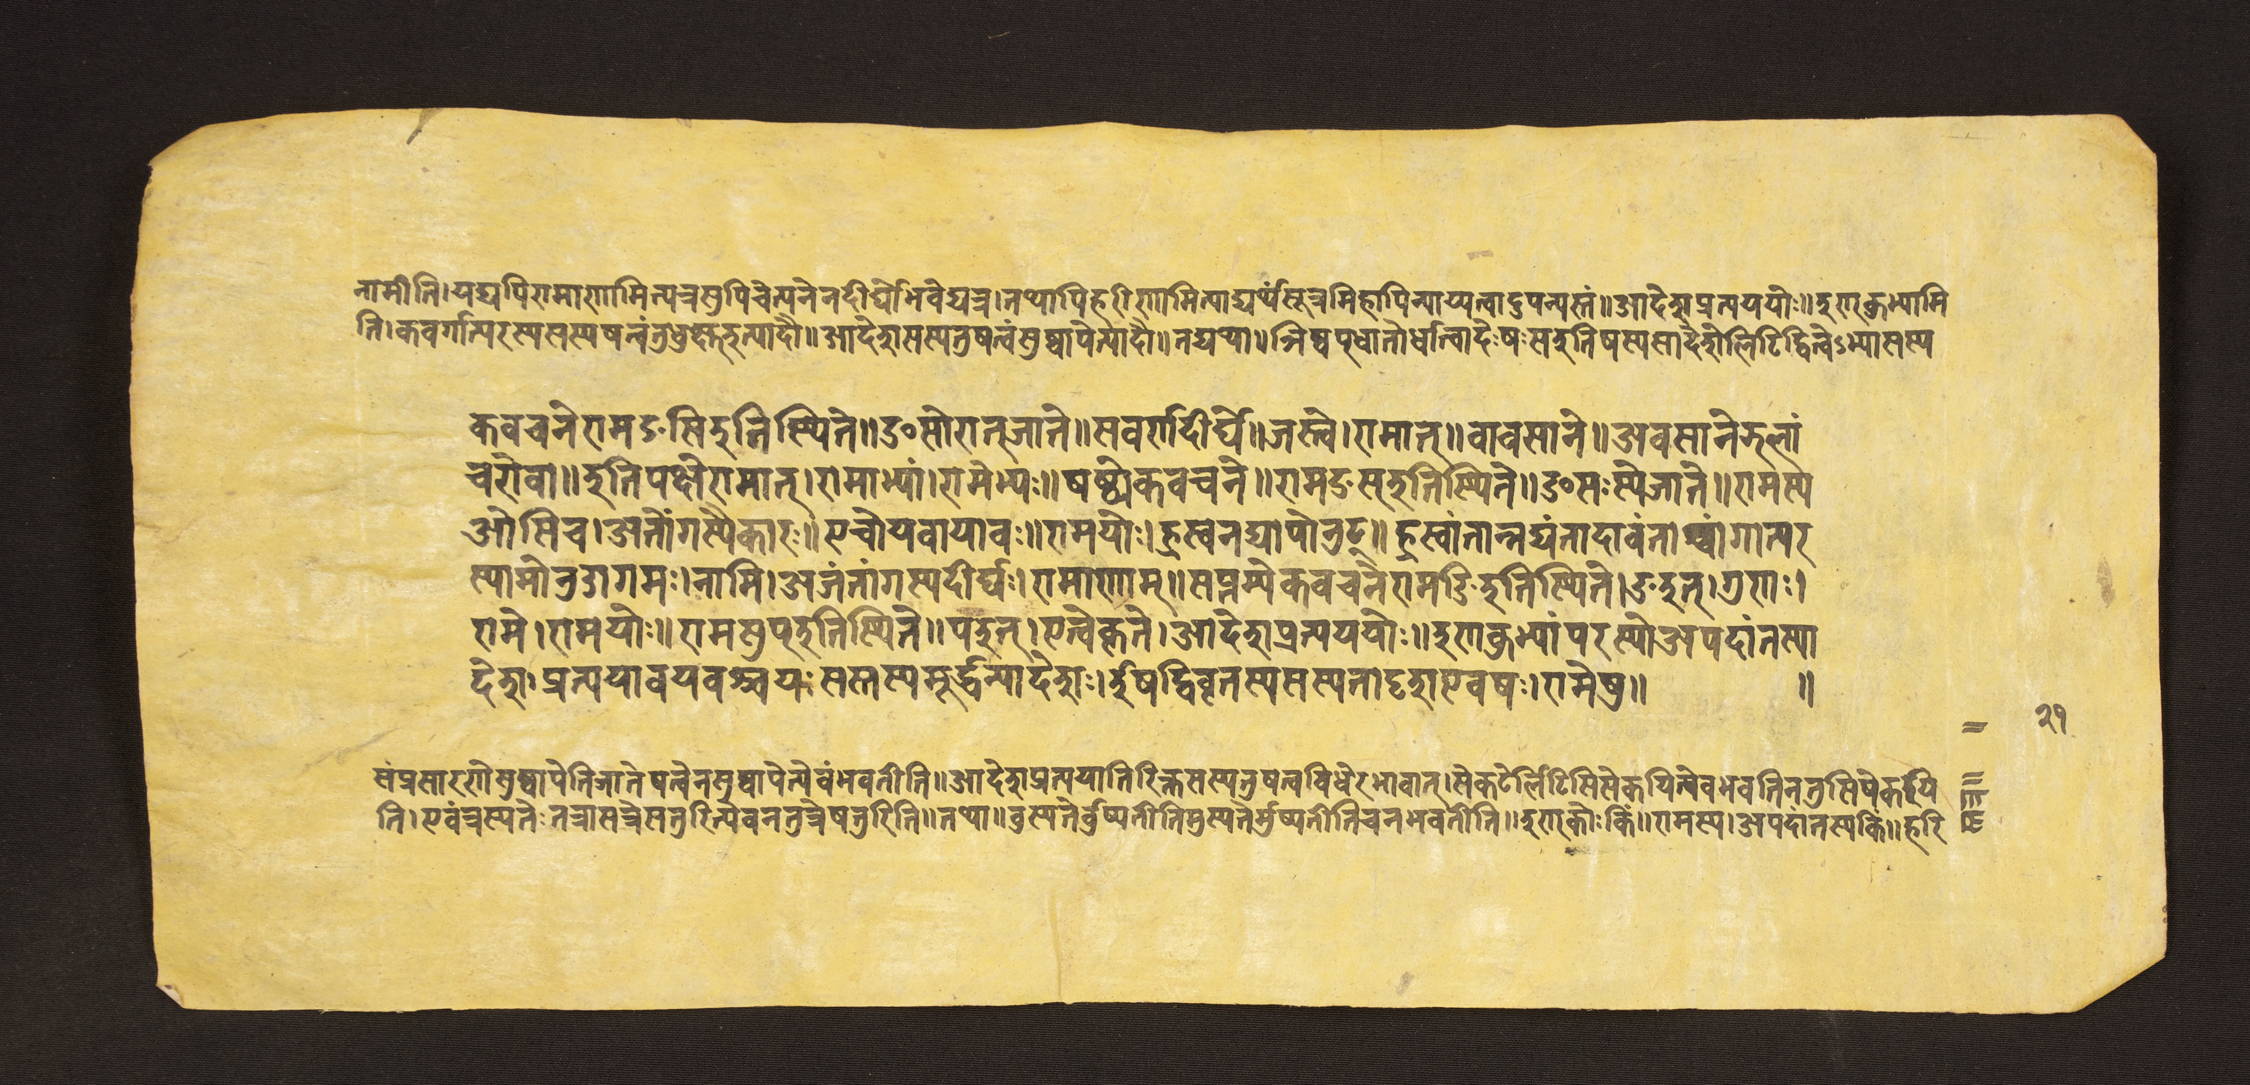 नामीति।यद्यपिरामाणामित्यत्रसुपिचेत्यनेनदीर्घोभवेद्यत्र।तथापिहरीणामित्याद्यर्थंसूत्रमिहापिन्याय्यत्वादुपन्यस्तं॥आदेशप्रत्यययोः॥इणकुभ्यामि
ति।कवर्गात्परस्यसस्यषत्वंतु इत्यादौ॥आदेशसस्यतुषत्वंसुष्वापेत्यादौ॥तद्यथा॥ञिष्वप्धातोर्धात्वादेःषःसइतिषस्यसादेशेलिटिद्वित्वेऽभ्यासस्य
कवचनेरामङसिइतिस्थिते॥ङसोरात्जाते॥सवर्णदीर्घे॥जस्त्वे।रामात्॥वावसाने॥अवसानेझलां
चरोवा॥इतिपक्षेरामात्।रामाभ्यां।रामेभ्यः॥षष्ठ्येकवचने॥रामङस्इतिस्थिते॥ङसःस्येजाते॥रामस्य
ओसिच।अतोंगस्यैकारः॥एचोयवायावः॥रामयोः।ह्रस्वनद्यापोनुट्॥ह्रस्वांतान्नद्यंतादाबंताच्चांगात्पर
स्यामोनुडागमः।नामि।अजंतांगस्यदीर्घः।रामाणाम्॥सप्तम्येकवचनेरामङिइतिस्थिते।ङइत्।गुणः।
रामे।रामयोः॥रामसुप्इतिस्थिते॥पइत्।एत्वेकृते।आदेशप्रत्यययोः॥इणकुभ्यांपरस्योअपदांतस्या
देशः।प्रत्ययावयवश्चयःसस्तस्यमूर्द्धन्यादेशः।ईषद्विवृतस्यसस्यतादृशएवषः।रामेषु॥ ॥
२१
संप्रसारणेसुष्वापेतिजातेषत्वेनसुष्वापेत्येवंभवतीति॥आदेशप्रत्ययातिरिक्तसस्यतुषत्वविधेरभावात्।सेकटेर्लिटिसिसेकयित्येवभवतिनतुसिषेकयि
ति।एवंत्रस्यतेःतत्रासत्रेसतुरित्येवनतुत्रेषतुरिति॥तथा॥वुस्यतेर्वुष्यतीतिमुस्यतेर्मुष्यतीतिचनभवतीति॥इणकोःकिं॥रामस्य।अपदांतस्यकिं॥हरि